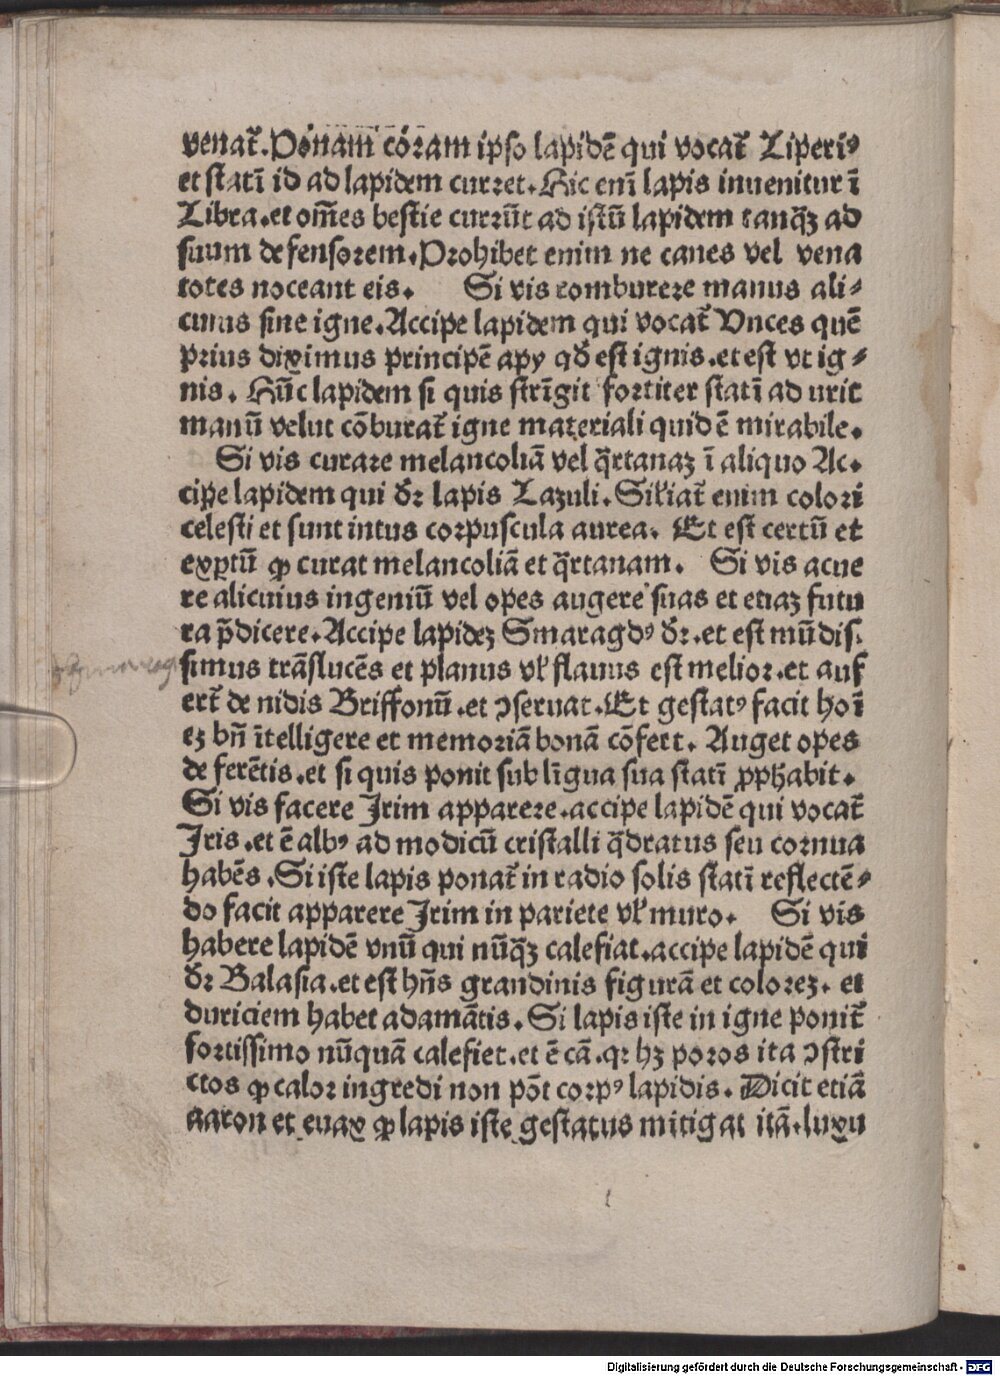 venat᷑.Ponam coram ipso lapidē qui vocat᷑ Liperiꝰ
et statī id ad lapidem curret.Hic enī lapis inuenitur ī
Libra.et om̄es bestie currūt ad istū lapidem tanq̄ꝫ ad
suum defensorem.Prohibet enim ne canes vel vena
totes noceant eis. Si vis comburere manus ali⸗
cuius sine igne.Accipe lapidem qui vocat᷑ Vnces quē
prius diximus principē apy qd̓ est ignis.et est vt ig⸗
nis. Hūc lapidem si quis strīgit fortiter statī ad urit
manū velut cōburat᷑ igne materiali quid ē mirabile.
Si vis curare melancoliā vel q̄rtanaꝫ ī aliquo Ac.
cipe lapidem qui dr̄ lapis Lazuli.Sil'iat᷑ enim colori
celesti et sunt intus corpuscula aurea. Et est certū et
exꝑtū ꝙ curat melancoliā et q̄rtanam. Si vis acue
re alicuius ingeniū vel opes augere suas et etiaꝫ futu
ra p̄dicere.Accipe lapideꝫ Smaragdꝰ dr̄.et est mūdis.
simus trāslucēs et planus vl' flauus est melior.et auf
ert᷑ de nidis Griffonū.et ꝯseruat.Et gestatꝰ facit hoī
eꝫ bn̄ ītelligere et memoriā bonā cōfert. Auget opes
deferētis.et si quis ponit sub līgua sua statī ꝓphabit.
Si vis facere Irim apparere.accipe lapidē qui vocat᷑
Iris.et ē albꝰ ad modicū cristalli q̄dratus seu cornua
habēs.Si iste lapis ponat᷑ in radio solis statī reflectē⸗
do facit apparere Irim in pariete vl' muro. Si vis
habere lapidē vnū qui nūq̄ꝫ calefiat.accipe lapidē qui
dr̄ Balasia.et est hn̄s grandinis figurā et coloreꝫ. et
duriciem habet adamātis.Si lapis iste in igne ponit᷑
fortissimo nūquā calefiet.et ē cā.qꝛ hꝫ poros ita ꝯstri
ctos ꝙ calor ingredi non pōt corpꝰ lapidis. Dicit etiā
aaron et euax ꝙ lapis iste gestatus mitigat itā.luxu
Digitalisierung gefördert durch die Deutsche Forschungsgemeinschaft - DFG